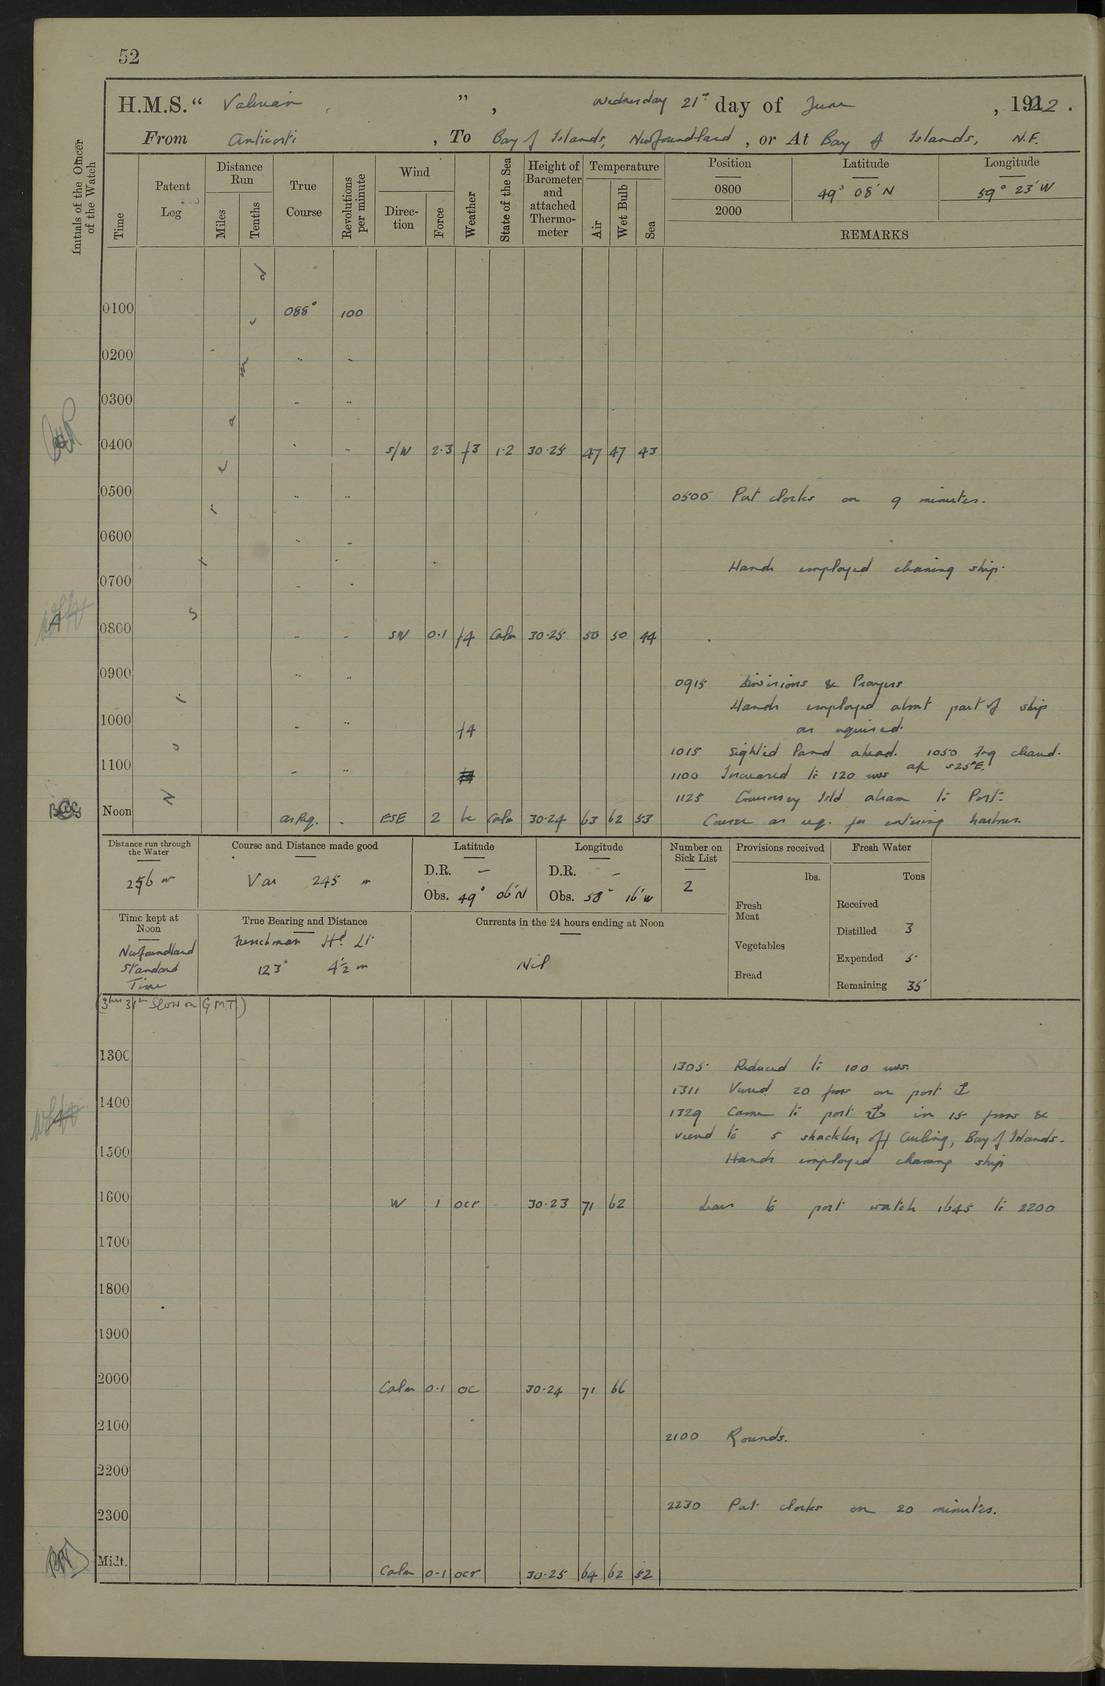 52
H.M.S. " Valerian " , Wednesday 21st day of June , 1922 .
From Anticosti , To Bay of Islands, Newfoundland , or At Bay of Islands, N.F.
Initials of the Officer of the Watch
Time
Patent Log
Distance Run
Miles
Tenths
True Course
Revolutions per minute
Wind
Direction
Force
Weather
State of the Sea
Height of Barometer and attached Thermometer
Temperature
Air
Wet Bulb
Sea
Position Latitude Longitude
0800 49° 08' N 59° 23' W
2000
REMARKS
0100 088° 100
0200 " "
0300 " "
0400 " " S/W 2·3 f3 1·2 30·25 47 47 43
0500 " " 0500 Put clocks on 9 minutes.
0600 " "
Hands employed cleaning ship.
0700 " "
0800 " " SW 0·1 f4 Calm 30·25 50 50 44
0900 " " 0915 Divisions & Prayers
Hands employed about part of ship
1000 " " f4 as required.
1015 Sighted Land ahead. 1050 Fog cleared.
1100 " " 1100 Increased to 120 revs a/c S25°E.
1125 Governor's Isld abeam to Port.
Noon as Req. " ESE 2 bc Calm 30·24 63 62 53 Course as req. for entering harbour.
Distance run through the Water
256 m
Course and Distance made good
Var 245 m
Latitude
D.R. —
Obs. 49° 06' N
Longitude
D.R. —
Obs. 58° 16' W
Number on Sick List
2
Provisions received
lbs.
Fresh Meat
Vegetables
Bread
Fresh Water
Tons
Received
Distilled 3
Expended 5
Remaining 35
Time kept at Noon
Newfoundland Standard Time
(3hrs 31m Slow on G.M.T)
True Bearing and Distance
Frenchman Hd. Lt.
123° 4½ m
Currents in the 24 hours ending at Noon
Nil
1300 1305 Reduced to 100 revs.
1311 Veered 20 fms on port ⚓
1400 1329 Came to port ⚓ in 15 fms &
veered to 5 shackles, off Curling, Bay of Islands.
1500 Hands employed cleaning ship
1600 W 1 ocr 30·23 71 62 Leave to port watch 1645 to 2200
1700
1800
1900
2000 Calm 0·1 oc 30·24 71 66
2100 2100 Rounds.
2200
2300 2230 Put clocks on 20 minutes.
Midt. Calm 0·1 ocr 30·25 64 62 52